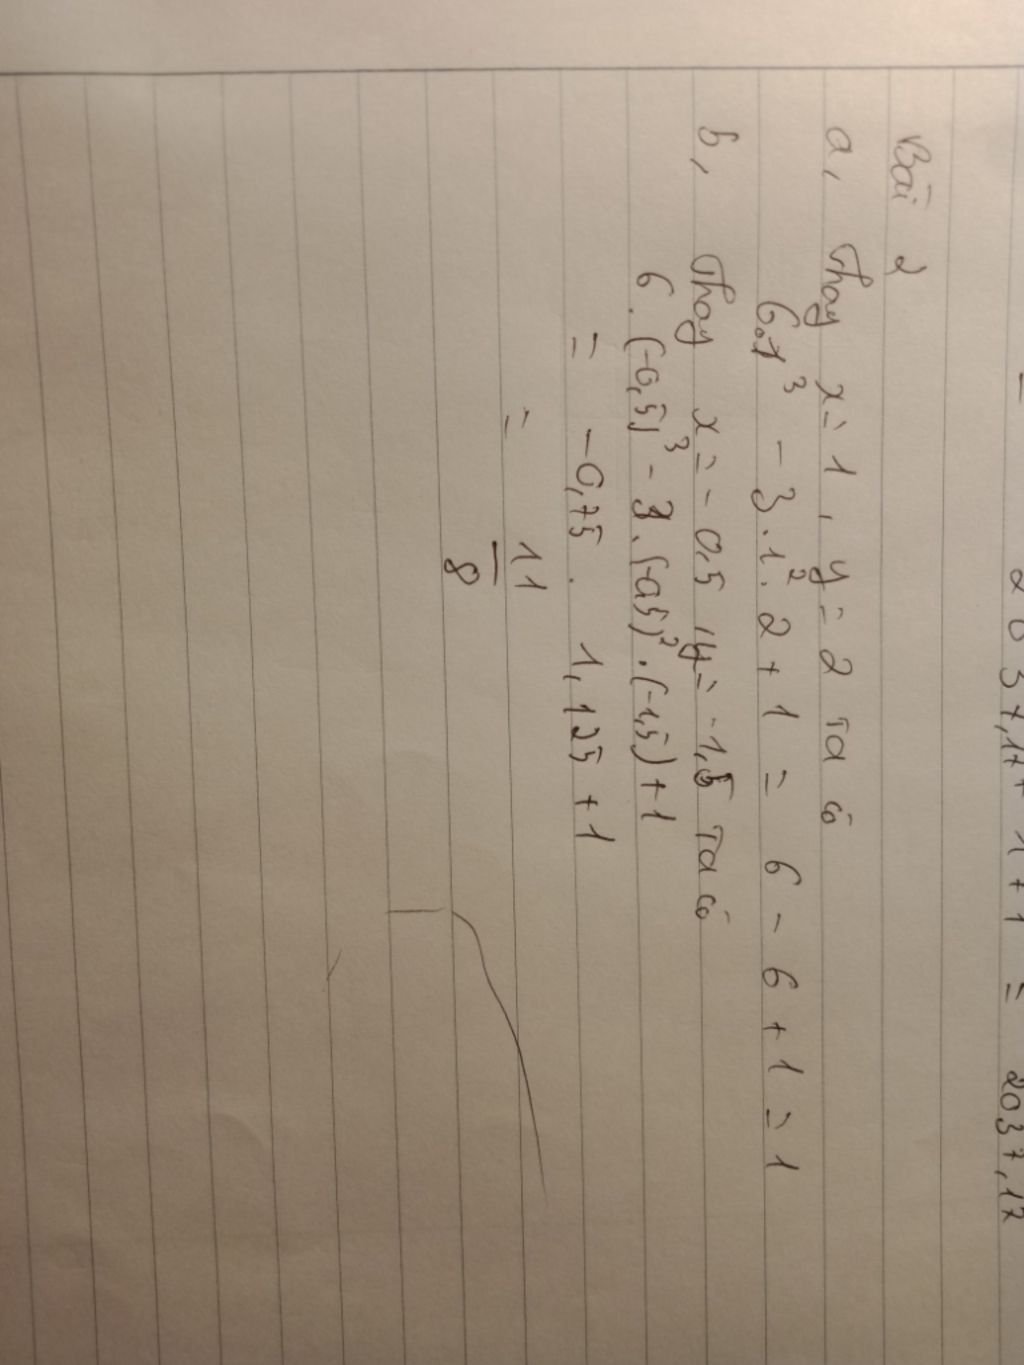 = 2037,17 + 1 + 1 = 2037,17
Bài 2
a, Thay x = 1, y = 2 ta có
6.1³ - 3.1².2 + 1 = 6 - 6 + 1 = 1
b, Thay x = - 0,5, y = -1,5 ta có
6.(-0,5)³ - 3.(-0,5)².(-1,5) + 1
= -0,75 . 1,125 + 1
= 11/8